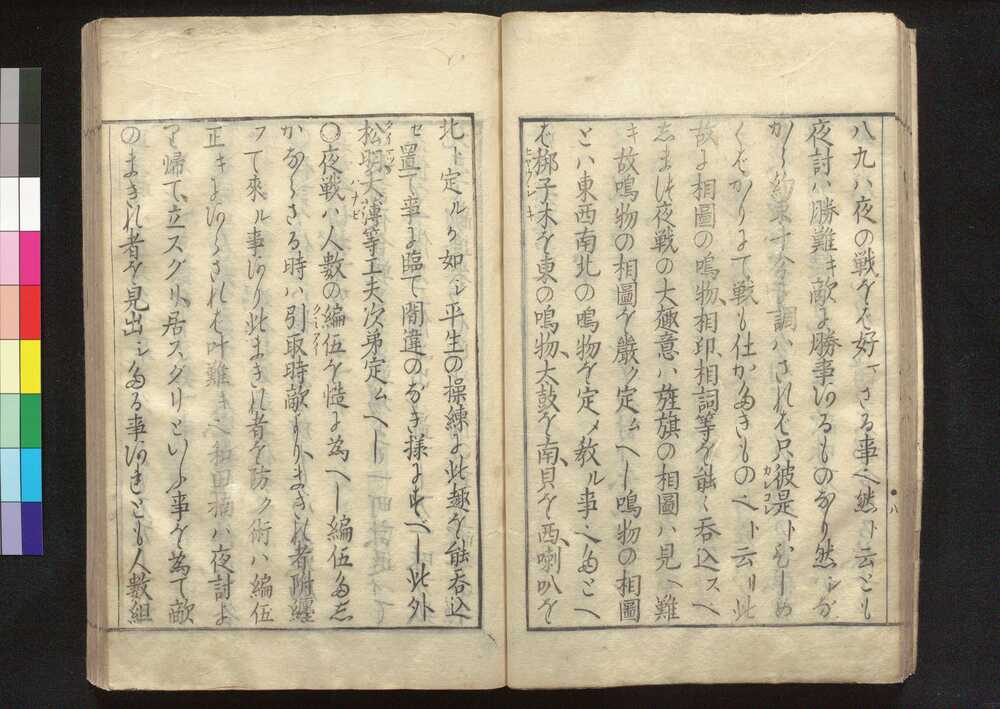 八九ハ夜の戦をバ好マざる事也然ﾄ云とも
夜討ハ勝難キ敵に勝事あるものなり然シな
がら約束十分に調ハざれバ只彼是ﾄむしめ
くばかりにて戦も仕がたきもの也ﾄ云リ此
故に相圖の鳴物、相印、相詞等を能ク呑込スベ
しまづ夜戦の大趣意ハ旌旗の相圖ハ見ヘ難
キ故鳴物の相圖を厳ク定ムべし鳴物の相圖
とハ東西南北の鳴物を定メ教ル事也たとへ
ば梆子木を東の鳴物、大鼓を南、貝を西、喇叭を
北ﾄ定ルか如シ平生の操練に此趣を能呑込
セ置て事に臨て間違のなき様にすべし此外
松明火薄等工夫次第定ムべし
○夜戦ハ人数の編伍を慥に為べし編伍たし
かならざる時ハ引取時敵よりまぎれ者附纏
フて來ル事あり此まぎれ者を防ク術ハ編伍
正キにあらざれバ叶難キ也和田楠ハ夜討よ
リ帰て、立スグリ、居スグリといふ事を為て敵
のまぎれ者を見出シたる事あれども人数組